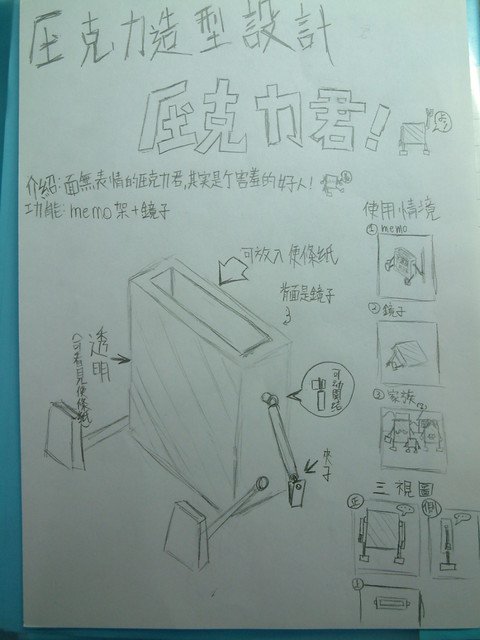 压克力造型設計
压克力君!
介紹:面無表情的压克力君,其實是个害羞的好人!
功能:memo架+鏡子
使用情境
①memo
可放入便條紙
背面是鏡子
②鏡子
透明
(可看見便條紙)
可動關節
③家族
夾子
三視圖
正
側
上